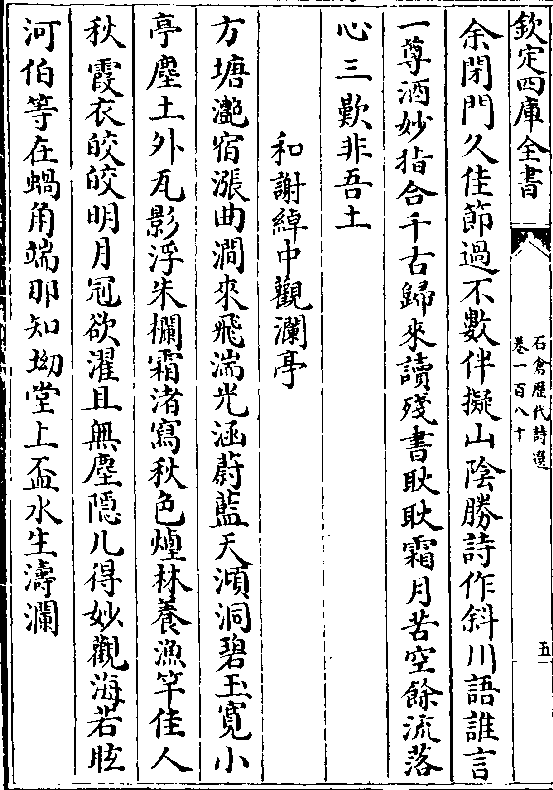 欽定四庫全書
石倉歴代詩選
卷一百八十
五
余閉門久佳節過不數伴擬山陰勝詩作斜川語誰言
一尊酒妙指合千古歸來讀殘書耿耿霜月苦空餘流落
心三歎非吾土
和謝綽中觀瀾亭
方塘灔宿漲曲澗來飛湍光涵蔚藍天澒洞碧玉寛小
亭塵土外瓦影浮朱欄霜渚寫秋色煙林養漁竿佳人
秋霞衣皎皎明月冠欲濯且無塵隠几得妙觀海若眩
河伯等在蝸角端那知坳堂上盃水生濤瀾